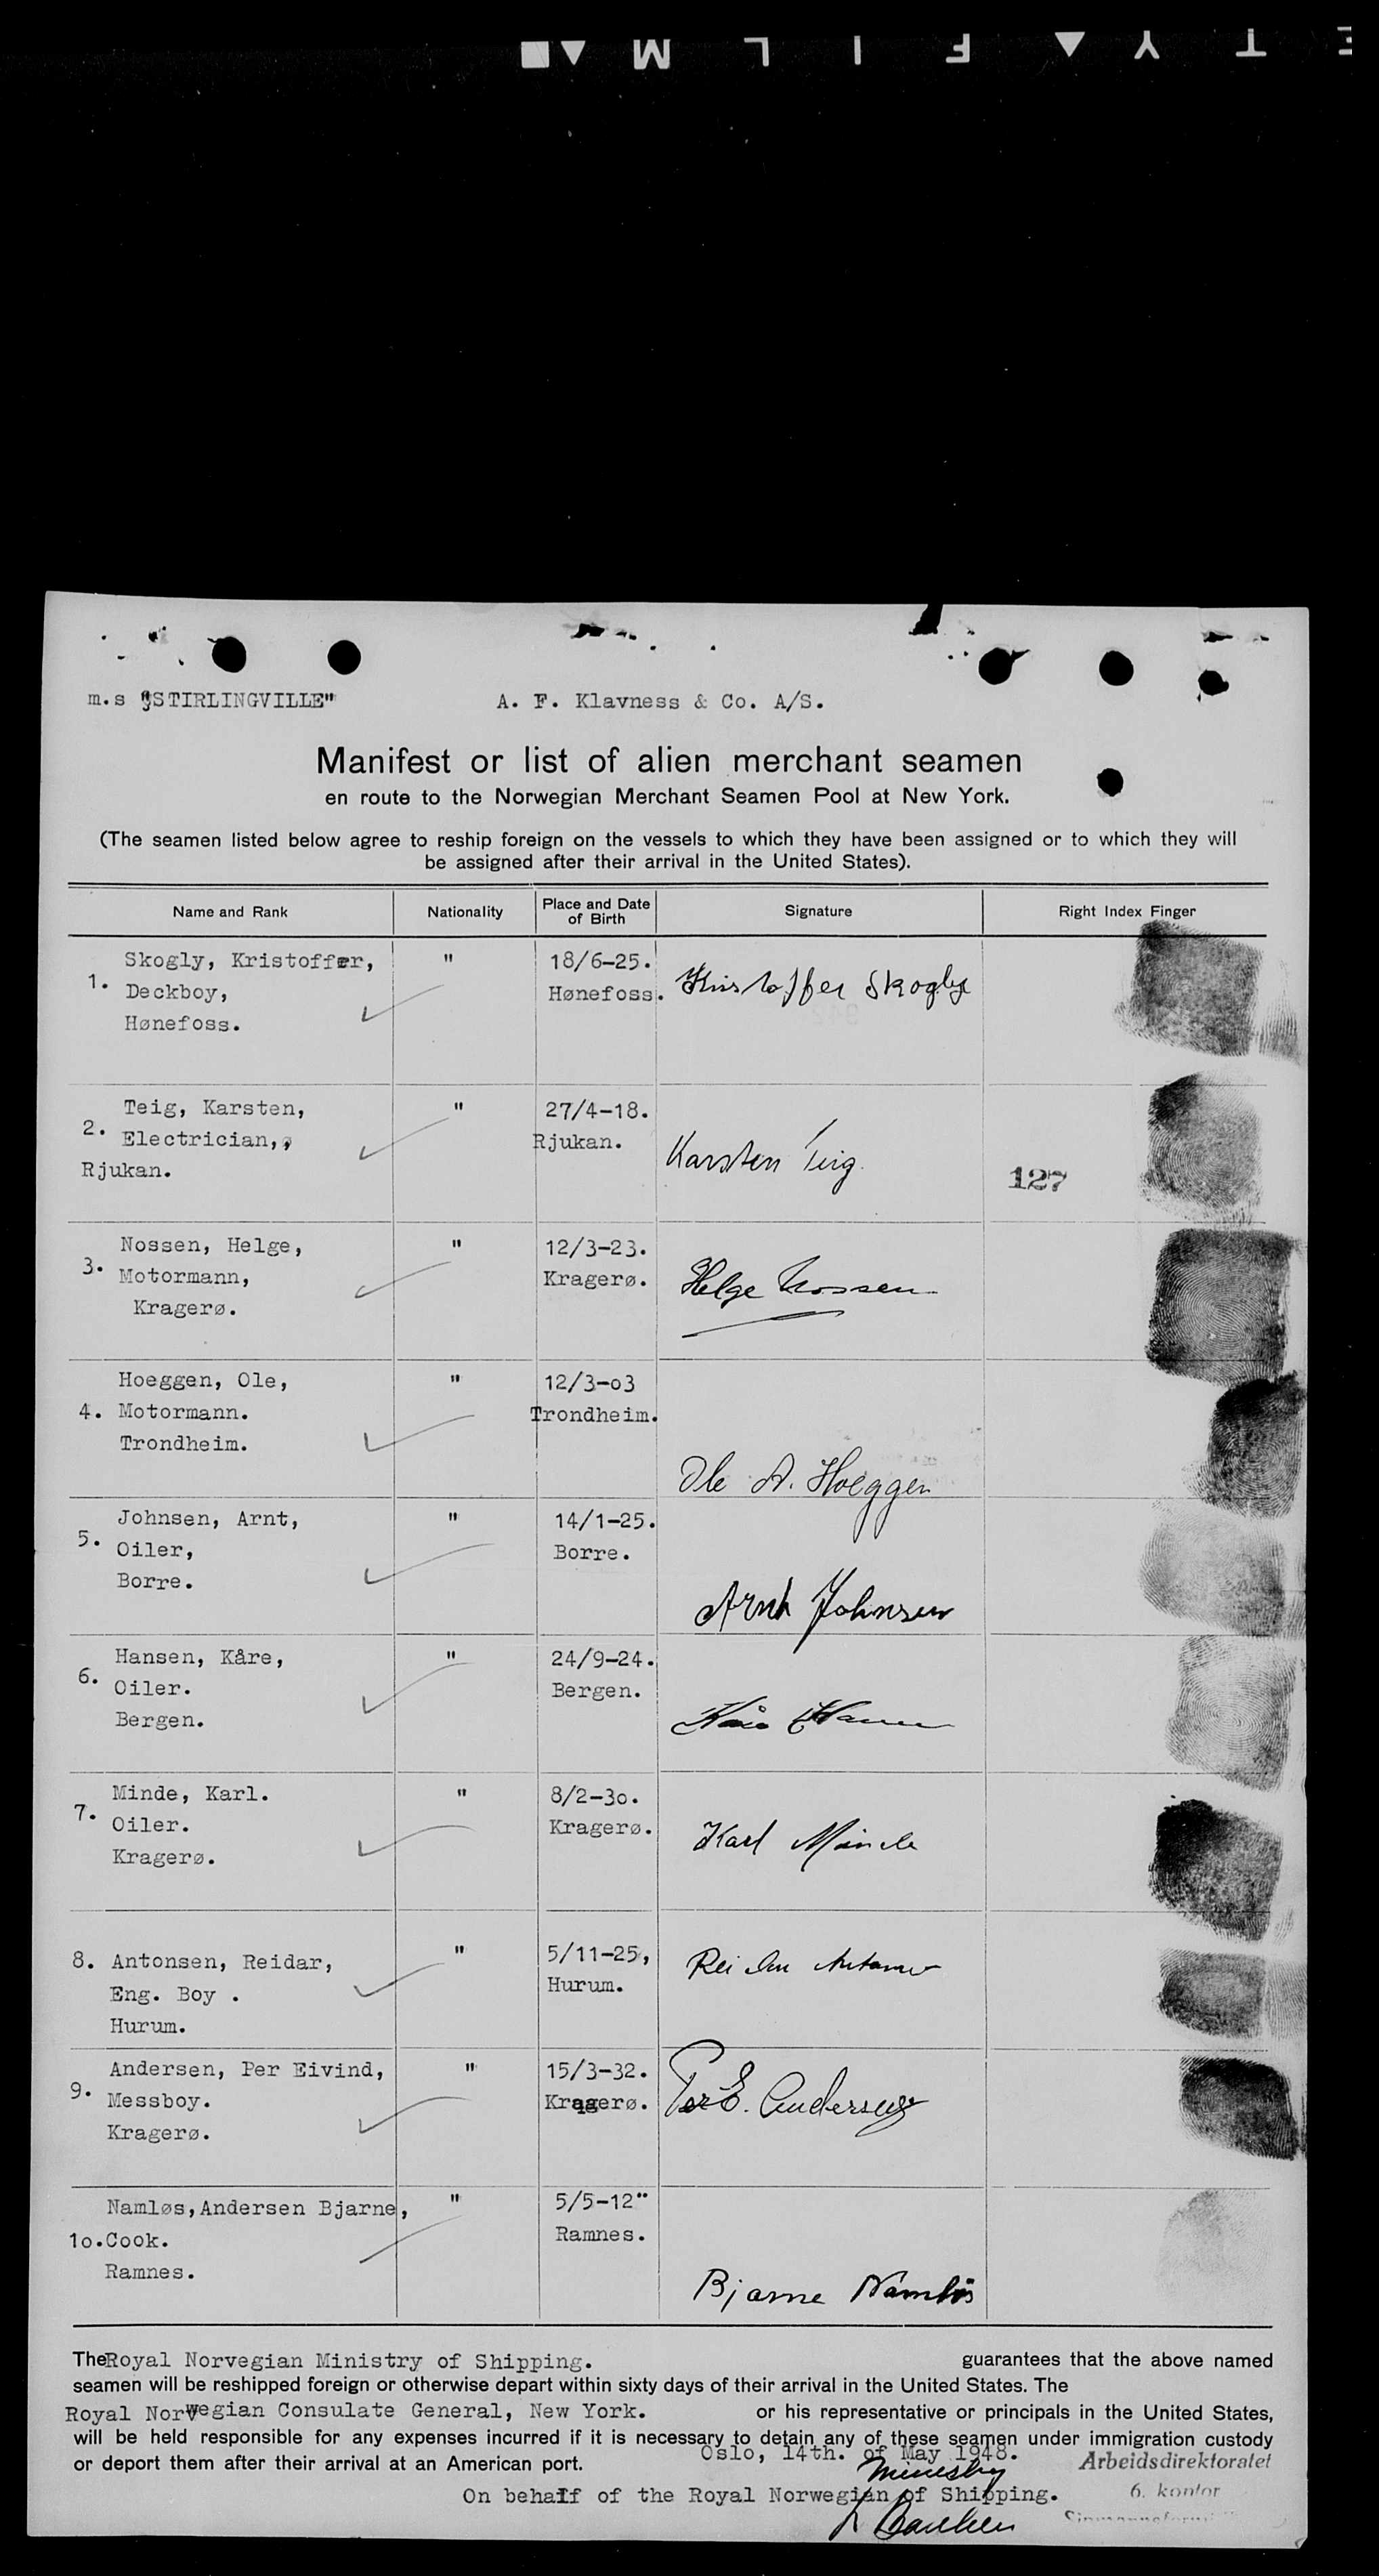 E T Y ▲ F I L M ▲ ■
m.s "STIRLINGVILLE" A. F. Klavness & Co. A/S.
Manifest or list of alien merchant seamen
en route to the Norwegian Merchant Seamen Pool at New York.
(The seamen listed below agree to reship foreign on the vessels to which they have been assigned or to which they will
be assigned after their arrival in the United States).
Name and Rank Nationality Place and Date of Birth Signature Right Index Finger
1. Skogly, Kristoffer, " 18/6-25. Kristoffer Skogly
Deckboy, Hønefoss.
Hønefoss.
2. Teig, Karsten, " 27/4-18. Karsten Teig.
Electrician,, Rjukan.
Rjukan. 127
3. Nossen, Helge, " 12/3-23. Helge Nossen
Motormann, Kragerø.
Kragerø.
4. Hoeggen, Ole, " 12/3-o3 Ole A. Hoeggen
Motormann. Trondheim.
Trondheim.
5. Johnsen, Arnt, " 14/1-25. Arnt Johnsen
Oiler, Borre.
Borre.
6. Hansen, Kåre, " 24/9-24. Kåre Hansen
Oiler. Bergen.
Bergen.
7. Minde, Karl. " 8/2-3o. Karl Minde
Oiler. Kragerø.
Kragerø.
8. Antonsen, Reidar, " 5/11-25, Reidar Antonsen
Eng. Boy . Hurum.
Hurum.
9. Andersen, Per Eivind, " 15/3-32. Per E. Andersen
Messboy. Kragerø.
Kragerø.
1o. Namløs,Andersen Bjarne, " 5/5-12" Bjarne Namløs
Cook. Ramnes.
Ramnes.
The Royal Norvegian Ministry of Shipping. guarantees that the above named
seamen will be reshipped foreign or otherwise depart within sixty days of their arrival in the United States. The
Royal Norwegian Consulate General, New York. or his representative or principals in the United States,
will be held responsible for any expenses incurred if it is necessary to detain any of these seamen under immigration custody
or deport them after their arrival at an American port. Oslo, 14th. of May 1948. Arbeidsdirektoratet
Ministry 6. kontor
On behalf of the Royal Norwegian of Shipping.